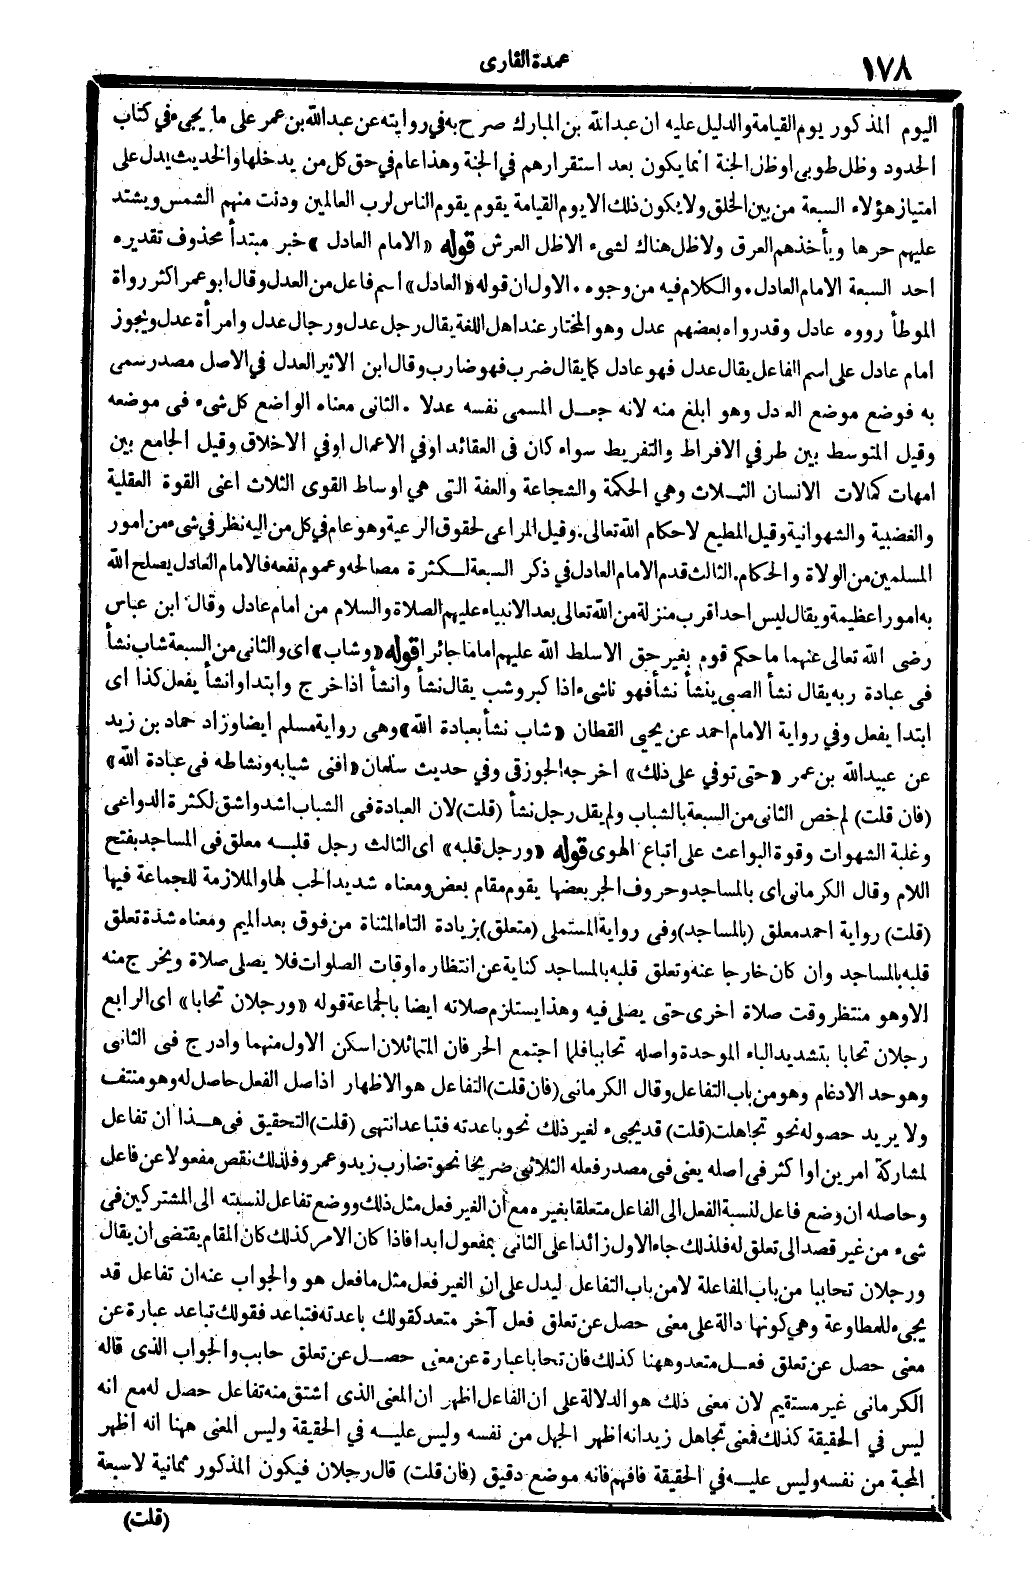 ١٧٨
عمدة القارى
اليوم المذكور يوم القيامة والدليل عليه ان عبدالله بن المبارك صرح به في روايته عن عبدالله بن عمر على ما يجيء في كتاب
الحدود وظل طوبى او ظل الجنة انما يكون بعد استقرارهم في الجنة وهذا عام في حق كل من يدخلها والحديث يدل على
امتياز هؤلاء السبعة من بين الخلق ولا يكون ذلك الا يوم القيامة يقوم يقوم الناس لرب العالمين ودنت منهم الشمس ويشتد
عليهم حرها ويأخذهم العرق ولا ظل هناك لشىء الا ظل العرش قوله «الامام العادل» خبر مبتدأ محذوف تقديره
احد السبعة الامام العادل . والكلام فيه من وجوه . الاول ان قوله «العادل» اسم فاعل من العدل وقال ابو عمر اكثر رواة
الموطأ رووه عادل وقد رواه بعضهم عدل وهو المختار عند اهل اللغة يقال رجل عدل ورجال عدل وامرأة عدل ويجوز
امام عادل على اسم الفاعل يقال عدل فهو عادل كما يقال ضرب فهو ضارب وقال ابن الاثير العدل في الاصل مصدر سمى
به فوضع موضع العادل وهو ابلغ منه لانه جعل المسمى نفسه عدلا . الثانى معناه الواضع كل شىء فى موضعه
وقيل المتوسط بين طرفي الافراط والتفريط سواء كان فى العقائد او في الاعمال او في الاخلاق وقيل الجامع بين
امهات كمالات الانسان الثلاث وهي الحكمة والشجاعة والعفة التى هي اوساط القوى الثلاث اعنى القوة العقلية
والغضبية والشهوانية وقيل المطيع لاحكام الله تعالى . وقيل المراعى لحقوق الرعية وهو عام في كل من اليه نظر في شىء من امور
المسلمين من الولاة والحكام . الثالث قدم الامام العادل في ذكر السبعة لكثرة مصالحه وعموم نفعه فالامام العادل يصلح الله
به امورا عظيمة ويقال ليس احد اقرب منزلة من الله تعالى بعد الانبياء عليهم الصلاة والسلام من امام عادل وقال ابن عباس
رضى الله تعالى عنهما ما حكم قوم بغير حق الا سلط الله عليهم اماما جائرا قوله «وشاب» اى والثانى من السبعة شاب نشأ
فى عبادة ربه يقال نشأ الصبى ينشأ نشأ فهو ناشىء اذا كبر وشب يقال نشأ وانشأ اذا خرج وابتدا وانشأ يفعل كذا اى
ابتدا يفعل وفي رواية الامام احمد عن يحيى القطان «شاب نشأ بعبادة الله» وهى رواية مسلم ايضا وزاد حماد بن زيد
عن عبيدالله بن عمر «حتى توفي على ذلك» اخرجه الجوزقى وفي حديث سلمان «افنى شبابه ونشاطه فى عبادة الله»
(فان قلت) لم خص الثانى من السبعة بالشباب ولم يقل رجل نشأ (قلت) لان العبادة فى الشباب اشد واشق لكثرة الدواعى
وغلبة الشهوات وقوة البواعث على اتباع الهوى قوله «ورجل قلبه» اى الثالث رجل قلبه معلق فى المساجد بفتح
اللام وقال الكرمانى اى بالمساجد وحروف الجر بعضها يقوم مقام بعض ومعناه شديد الحب لها والملازمة للجماعة فيها
(قلت) رواية احمد معلق (بالمساجد) وفى رواية المستملى (متعلق) بزيادة التاء المثناة من فوق بعد الميم ومعناه شدة تعلق
قلبه بالمساجد وان كان خارجا عنه وتعلق قلبه بالمساجد كناية عن انتظاره اوقات الصلوات فلا يصلى صلاة ويخرج منه
الا وهو منتظر وقت صلاة اخرى حتى يصلى فيه وهذا يستلزم صلاته ايضا بالجماعة قوله «ورجلان تحابا» اى الرابع
رجلان تحابا بتشديد الباء الموحدة واصله تحاببا فلما اجتمع الحرفان المتماثلان اسكن الاول منهما وادرج فى الثانى
وهو حد الادغام وهو من باب التفاعل وقال الكرمانى (فان قلت) التفاعل هو الاظهار اذ اصل الفعل حاصل له وهو منتف
ولا يريد حصوله نحو تجاهلت (قلت) قد يجىء لغير ذلك نحو باعدته فتباعد انتهى (قلت) التحقيق فى هذا ان تفاعل
لمشاركة امرين او اكثر فى اصله يعنى فى مصدر فعله الثلاثى صريحا نحو تضارب زيد وعمرو فلذلك نقص مفعولا عن فاعل
وحاصله ان وضع فاعل لنسبة الفعل الى الفاعل متعلقا بغيره مع أن الغير فعل مثل ذلك ووضع تفاعل لنسبته الى المشتركين فى
شىء من غير قصد الى تعلق له فلذلك جاء الاول زائدا على الثانى بمفعول ابدا فاذا كان الامر كذلك كان المقام يقتضى ان يقال
ورجلان تحاببا من باب المفاعلة لا من باب التفاعل ليدل على ان الغير فعل مثل ما فعل هو والجواب عنه ان تفاعل قد
يجىء للمطاوعة وهي كونها دالة على معنى حصل عن تعلق فعل آخر متعد كقولك باعدته فتباعد فقولك تباعد عبارة عن
معنى حصل عن تعلق فعل متعد وههنا كذلك فان تحابا عبارة عن معنى حصل عن تعلق حابب والجواب الذى قاله
الكرمانى غير مستقيم لان معنى ذلك هو الدلالة على ان الفاعل اظهر ان المعنى الذى اشتق منه تفاعل حصل له مع انه
ليس في الحقيقة كذلك فمعنى تجاهل زيد انه اظهر الجهل من نفسه وليس عليه في الحقيقة وليس المعنى ههنا انه اظهر
المحبة من نفسه وليس عليه في الحقيقة فافهم فانه موضع دقيق (فان قلت) قال رجلان فيكون المذكور ثمانية لا سبعة
(قلت)